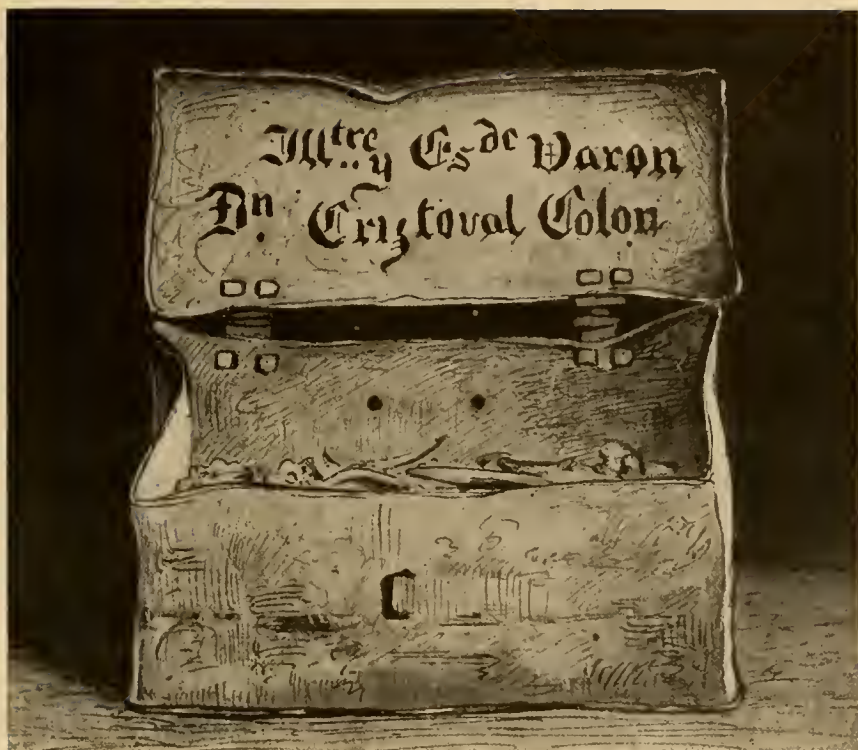 Illtre. y Esdo Varon
Dn. Criztoval Colon
C